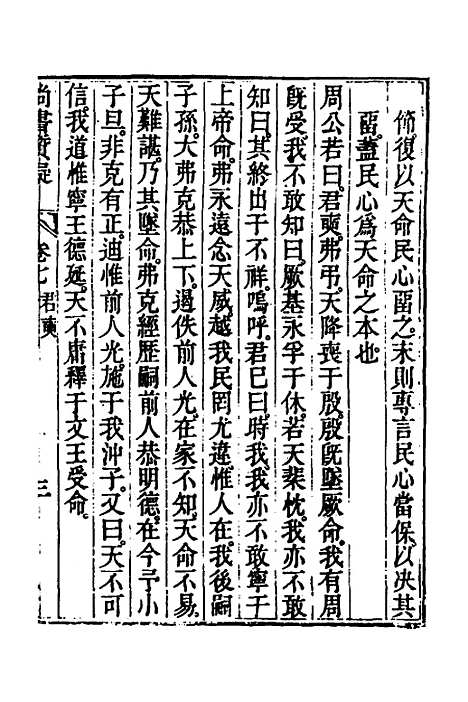 篇復以天命民心畱之末則專言民心當保以决其
畱蓋民心爲天命之本也
周公若曰君奭弗弔天降喪于殷殷旣墜厥命我有周
旣受我不敢知曰厥基永孚于休若天棐忱我亦不敢
知曰其終出于不祥嗚呼君已曰時我我亦不敢寧于
上帝命弗永遠念天威越我民罔尤違惟人在我後嗣
子孫大弗克恭上下遏佚前人光在家不知天命不易
天難諶乃其墜命弗克經歷嗣前人恭明德在今予小
子旦非克有正迪惟前人光施于我沖子又曰天不可
信我道惟寧王德延天不庸釋于文王受命
尚書質疑 卷七 君奭 三